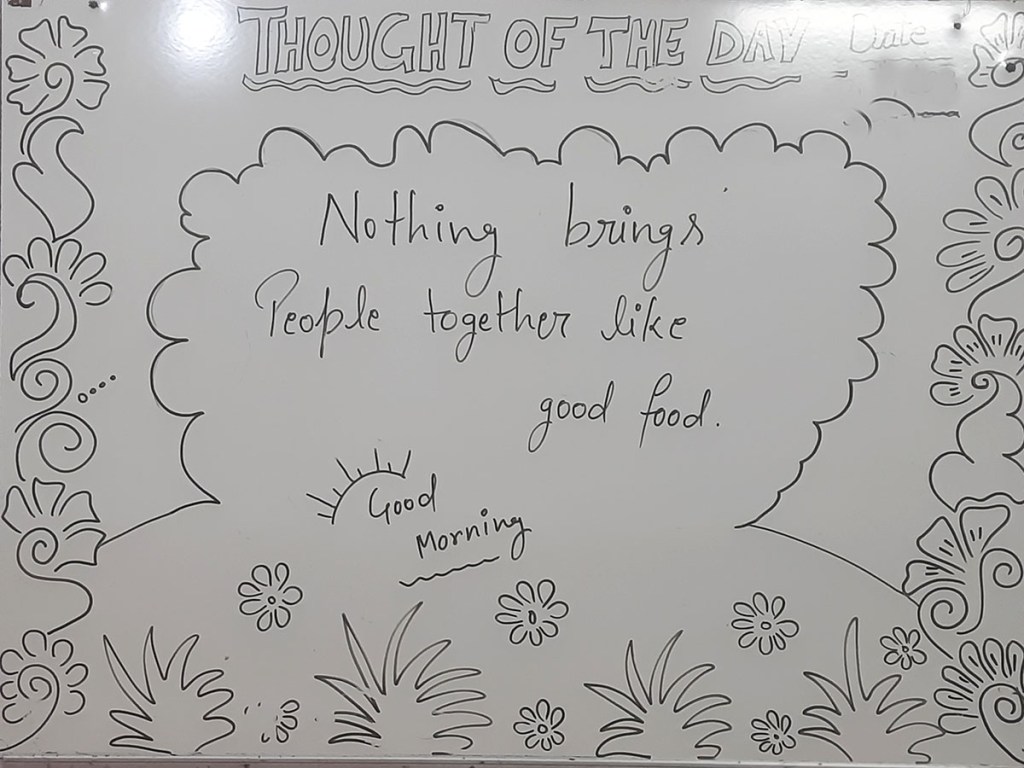 THOUGHT OF THE DAY
Date
Nothing brings
People together like
good food.
Good
Morning